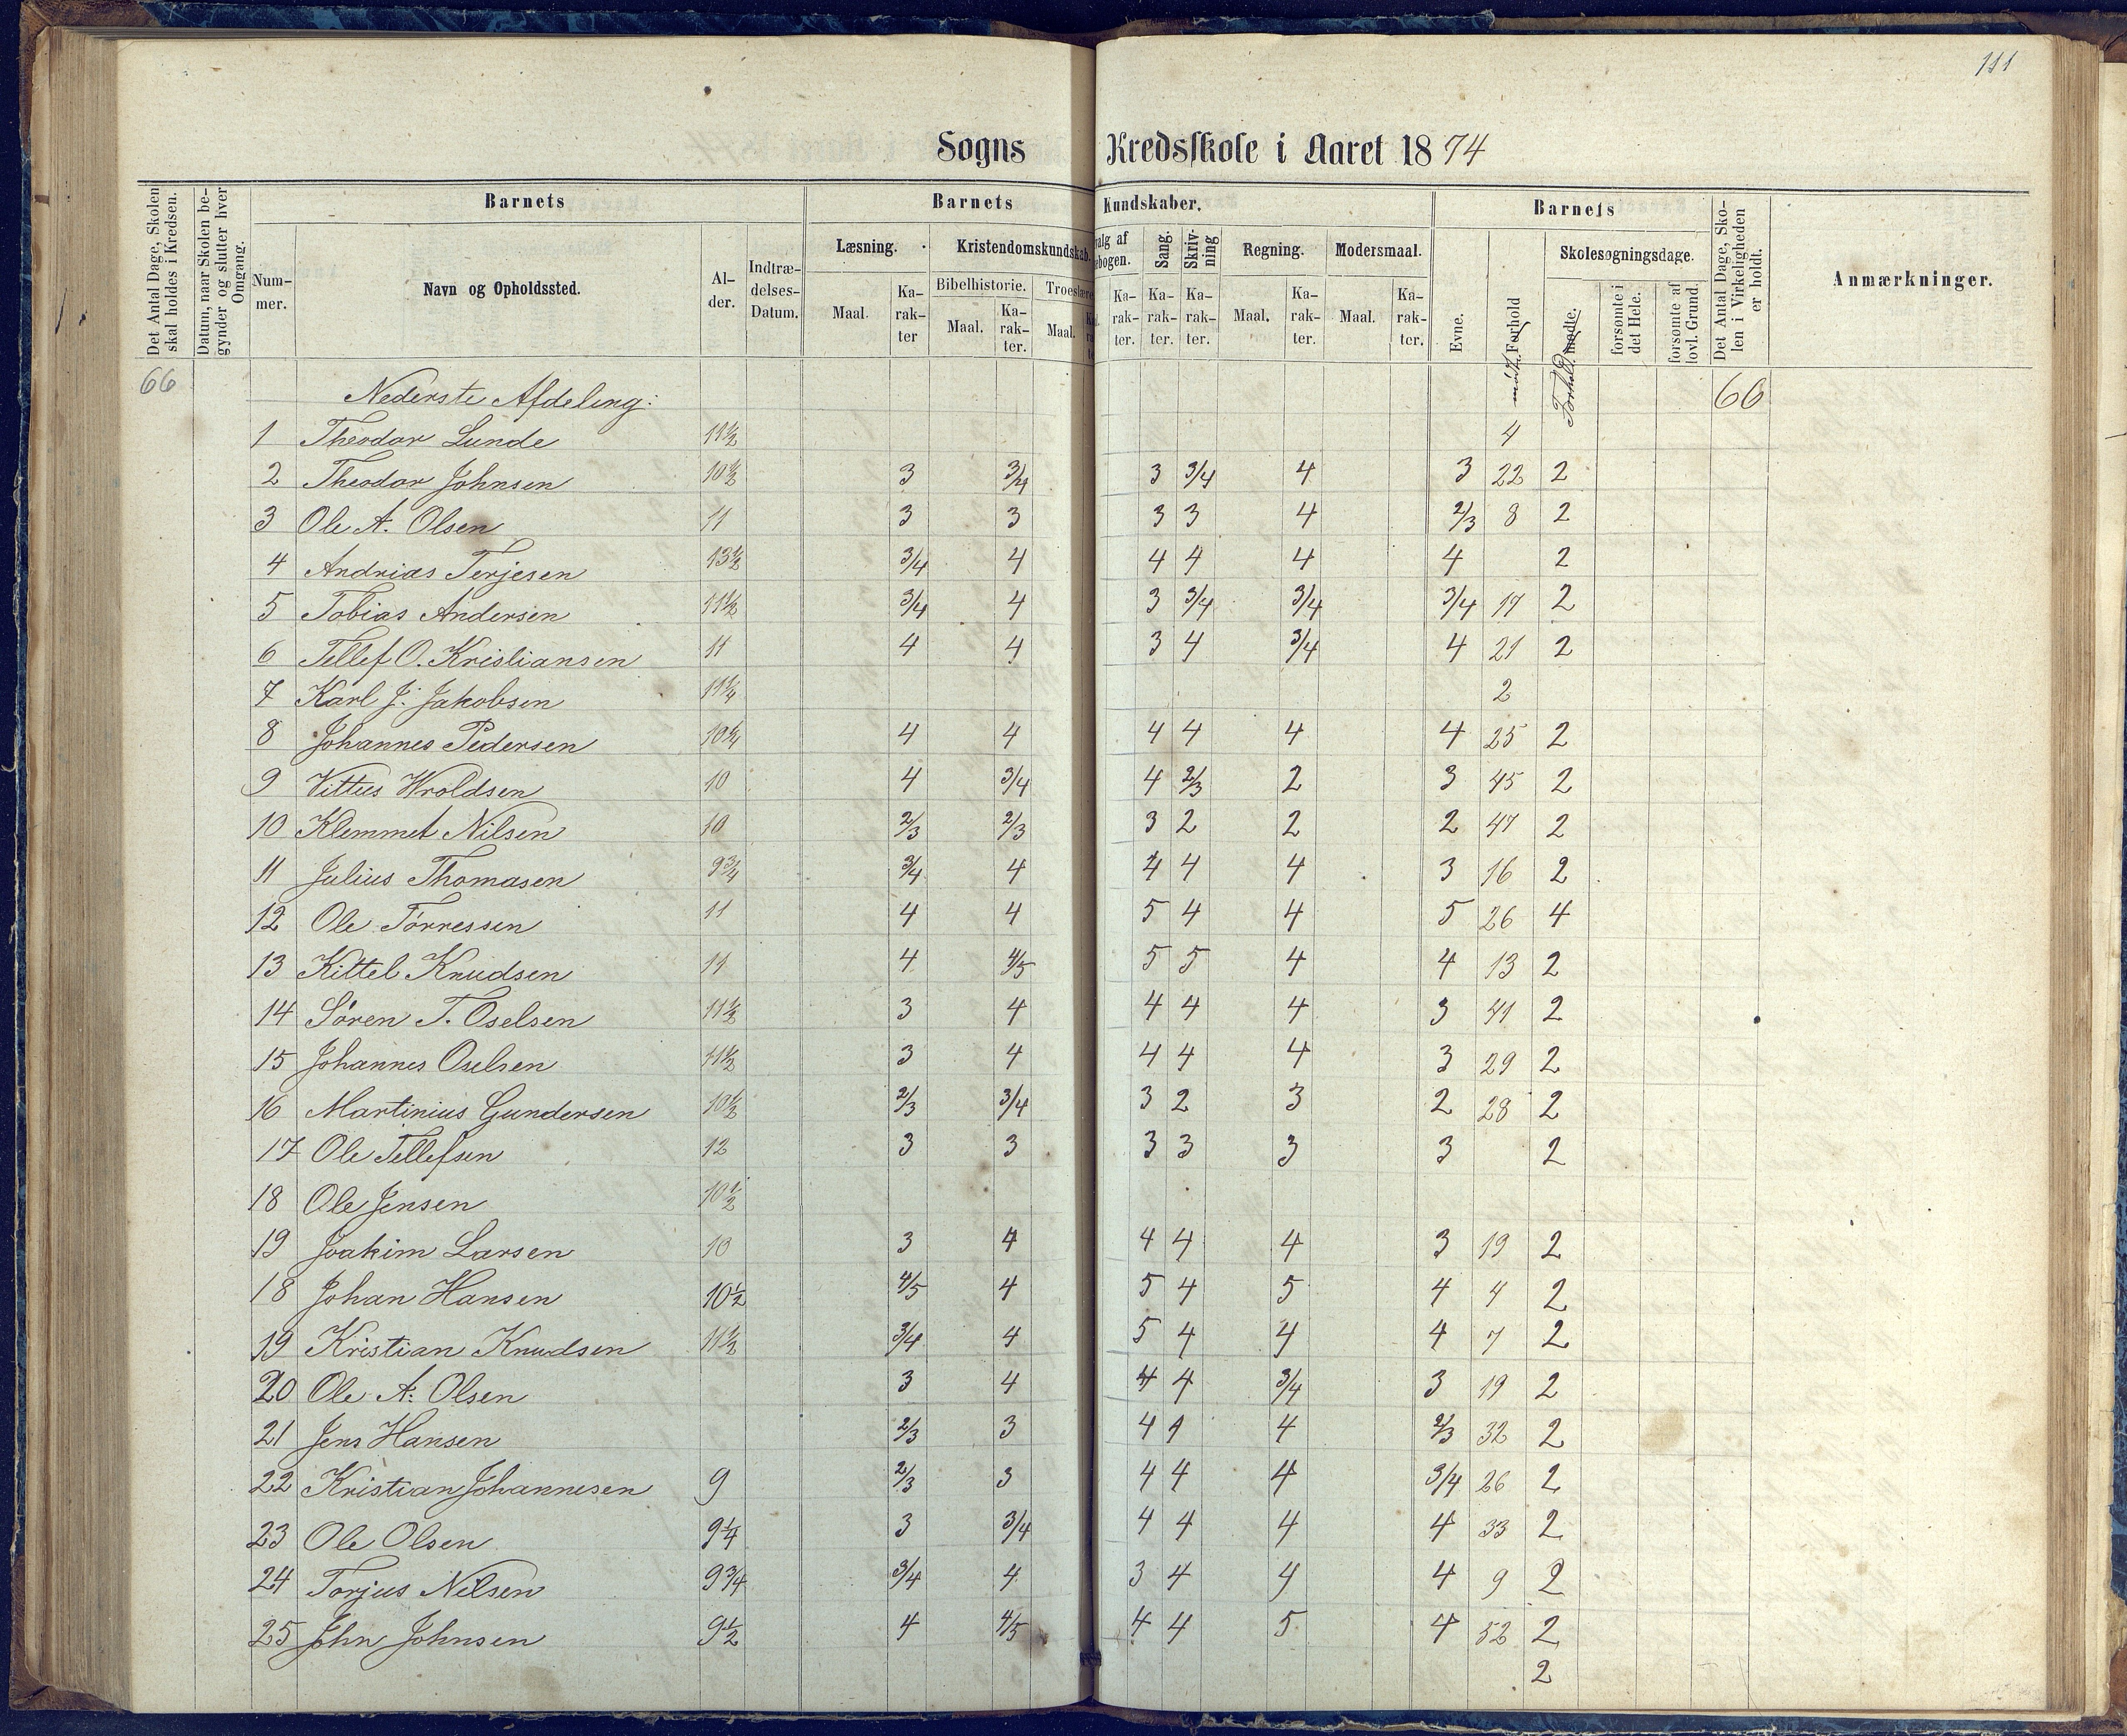 111
Sogns Kredsskole i Aaret 1874
Det Antal Dage, Skolen skal holdes i Kredsen.
Datum, naar Skolen begynder og slutter hver Omgang.
Barnets
Nummer.
Navn og Opholdssted.
Alder.
Indtrædelses-Datum.
Barnets Kundskaber.
Læsning.
Maal.
Karakter
Kristendomskundskab.
Bibelhistorie.
Maal.
Karakter.
Troeslære
Maal.
valg af
ebogen.
Karakter.
Sang.
Karakter.
Skrivning
Karakter.
Regning.
Maal.
Karakter.
Modersmaal.
Maal.
Karakter.
Barnets
Evne.
Forhold
Skolesøgningsdage.
mødte.
Forhold
forsømte i det Hele.
forsømte af lovl. Grund.
Det Antal Dage, Skolen i Virkeligheden er holdt.
Anmærkninger.
66 Nederste Afdeling: 66
1 Theodor Lunde 11½ 4
2 Theodor Johnsen 10½ 3 3/4 3 3/4 4 3 22 2
3 Ole A. Olsen 11 3 3 3 3 4 2/3 8 2
4 Andrias Terjesen 13½ 3/4 4 4 4 4 4 2
5 Tobias Andersen 11½ 3/4 4 3 3/4 3/4 3/4 17 2
6 Tellef O. Kristiansen 11 4 4 3 4 3/4 4 21 2
7 Karl J. Jakobsen 11¼ 2
8 Johannes Pedersen 10¼ 4 4 4 4 4 4 25 2
9 Vittus Wroldsen 10 4 3/4 4 2/3 2 3 45 2
10 Klemmet Nilsen 10 2/3 2/3 3 2 2 2 47 2
11 Julius Thomasen 9¾ 3/4 4 4 4 4 3 16 2
12 Ole Tørressen 11 4 4 5 4 4 5 26 4
13 Kittel Knudsen 11 4 4/5 5 5 4 4 13 2
14 Søren T. Oselsen 11½ 3 4 4 4 4 3 41 2
15 Johannes Oselsen 11½ 3 4 4 4 4 3 29 2
16 Martinius Gundersen 10½ 2/3 3/4 3 2 3 2 28 2
17 Ole Tellefsen 12 3 3 3 3 3 3 2
18 Ole Jensen 10½
19 Joakim Larsen 10 3 4 4 4 4 3 19 2
18 Johan Hansen 10½ 4/5 4 5 4 5 4 4 2
19 Kristian Knudsen 11½ 3/4 4 5 4 4 4 7 2
20 Ole A. Olsen 3 4 4 4 3/4 3 19 2
21 Jens Hansen 2/3 3 4 4 4 2/3 32 2
22 Kristian Johannesen 9 2/3 3 4 4 4 3/4 26 2
23 Ole Olsen 9¼ 3 3/4 4 4 4 4 33 2
24 Torjus Nilsen 9¾ 3/4 4 3 4 4 4 9 2
25 John Johnsen 9½ 4 4/5 4 4 5 4 52 2
2